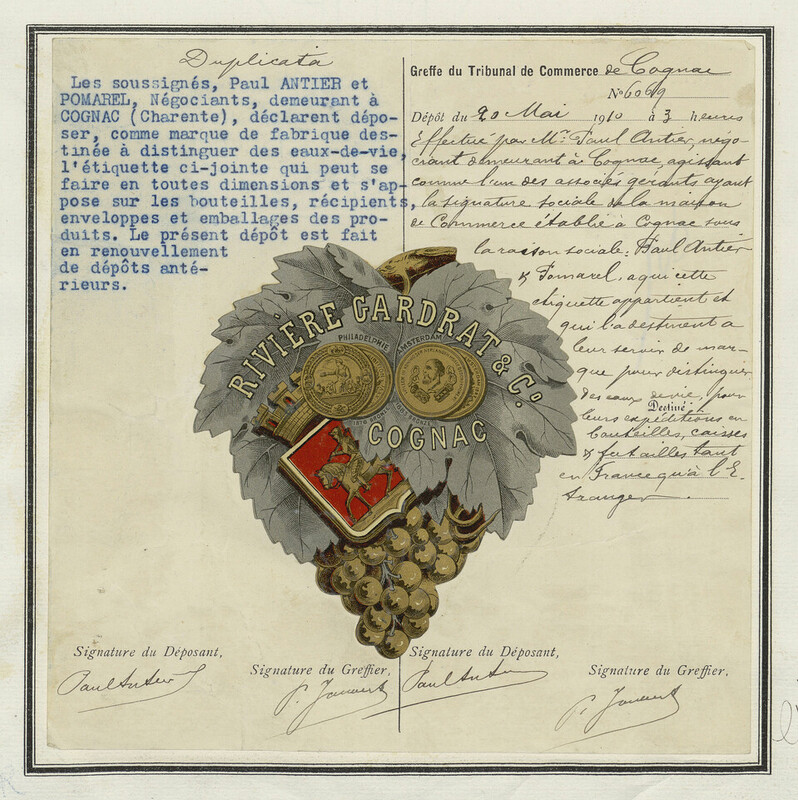 Duplicata
Les soussignés, Paul ANTIER et
POMAREL, Négociants, demeurant à
COGNAC (Charente), déclarent dépo-
ser, comme marque de fabrique des-
tinée à distinguer des eaux-de-vie,
l'étiquette ci-jointe qui peut se
faire en toutes dimensions et s'ap-
pose sur les bouteilles, récipients,
enveloppes et emballages des pro-
duits. Le présent dépôt est fait
en renouvellement
de dépôts anté-
rieurs.
Greffe du Tribunal de Commerce de Cognac
N° 6069
Dépôt du 20 Mai 1910 à 3 heures
Effectué par Mr. Paul Antier, négo-
ciant demeurant à Cognac, agissant
comme l'un des associés gérants ayant
la signature sociale de la maison
de Commerce établie à Cognac sous
la raison sociale: Paul Antier
& Pomarel, à qui cette
étiquette appartient et
qui l'a destinent a
leur servir de mar-
que pour distinguer
des eaux de vie, pour
Destiné à
leurs expéditions en
bouteilles, caisses
& futailles tant
en France qu'à l'E-
tranger.
RIVIÈRE GARDRAT & Co
PHILADELPHIE AMSTERDAM
COGNAC
Signature du Déposant,
Signature du Greffier,
Paul Antier
Signature du Déposant,
Signature du Greffier,
Paul Antier